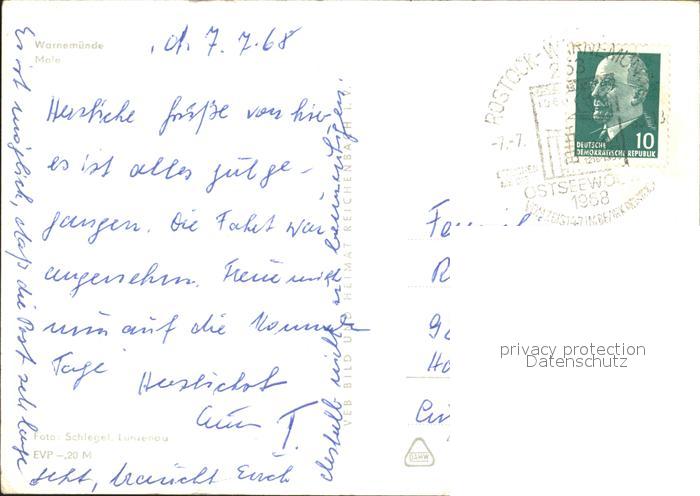 Warnemünde
Mole
d. 7.7.68
Herzliche Grüße von hier
es ist alles gut ge-
gangen. Die Fahrt war
angenehm. Freue mich
nun auf die kommenden
Tage
Herzlichst
Eure T.
Es ist möglich, daß die Post sehr lange
geht, braucht Euch
deshalb nicht zu beunruhigen.
Foto: Schlegel, Lunzenau
EVP -,20 M
VEB BILD UND HEIMAT REICHENBACH I. V.
ROSTOCK-WARNEMÜNDE
253
-7.-7.
OSTSEEWOCHE
1968
10
DEUTSCHE
DEMOKRATISCHE REPUBLIK
DAMW
privacy protection
Datenschutz